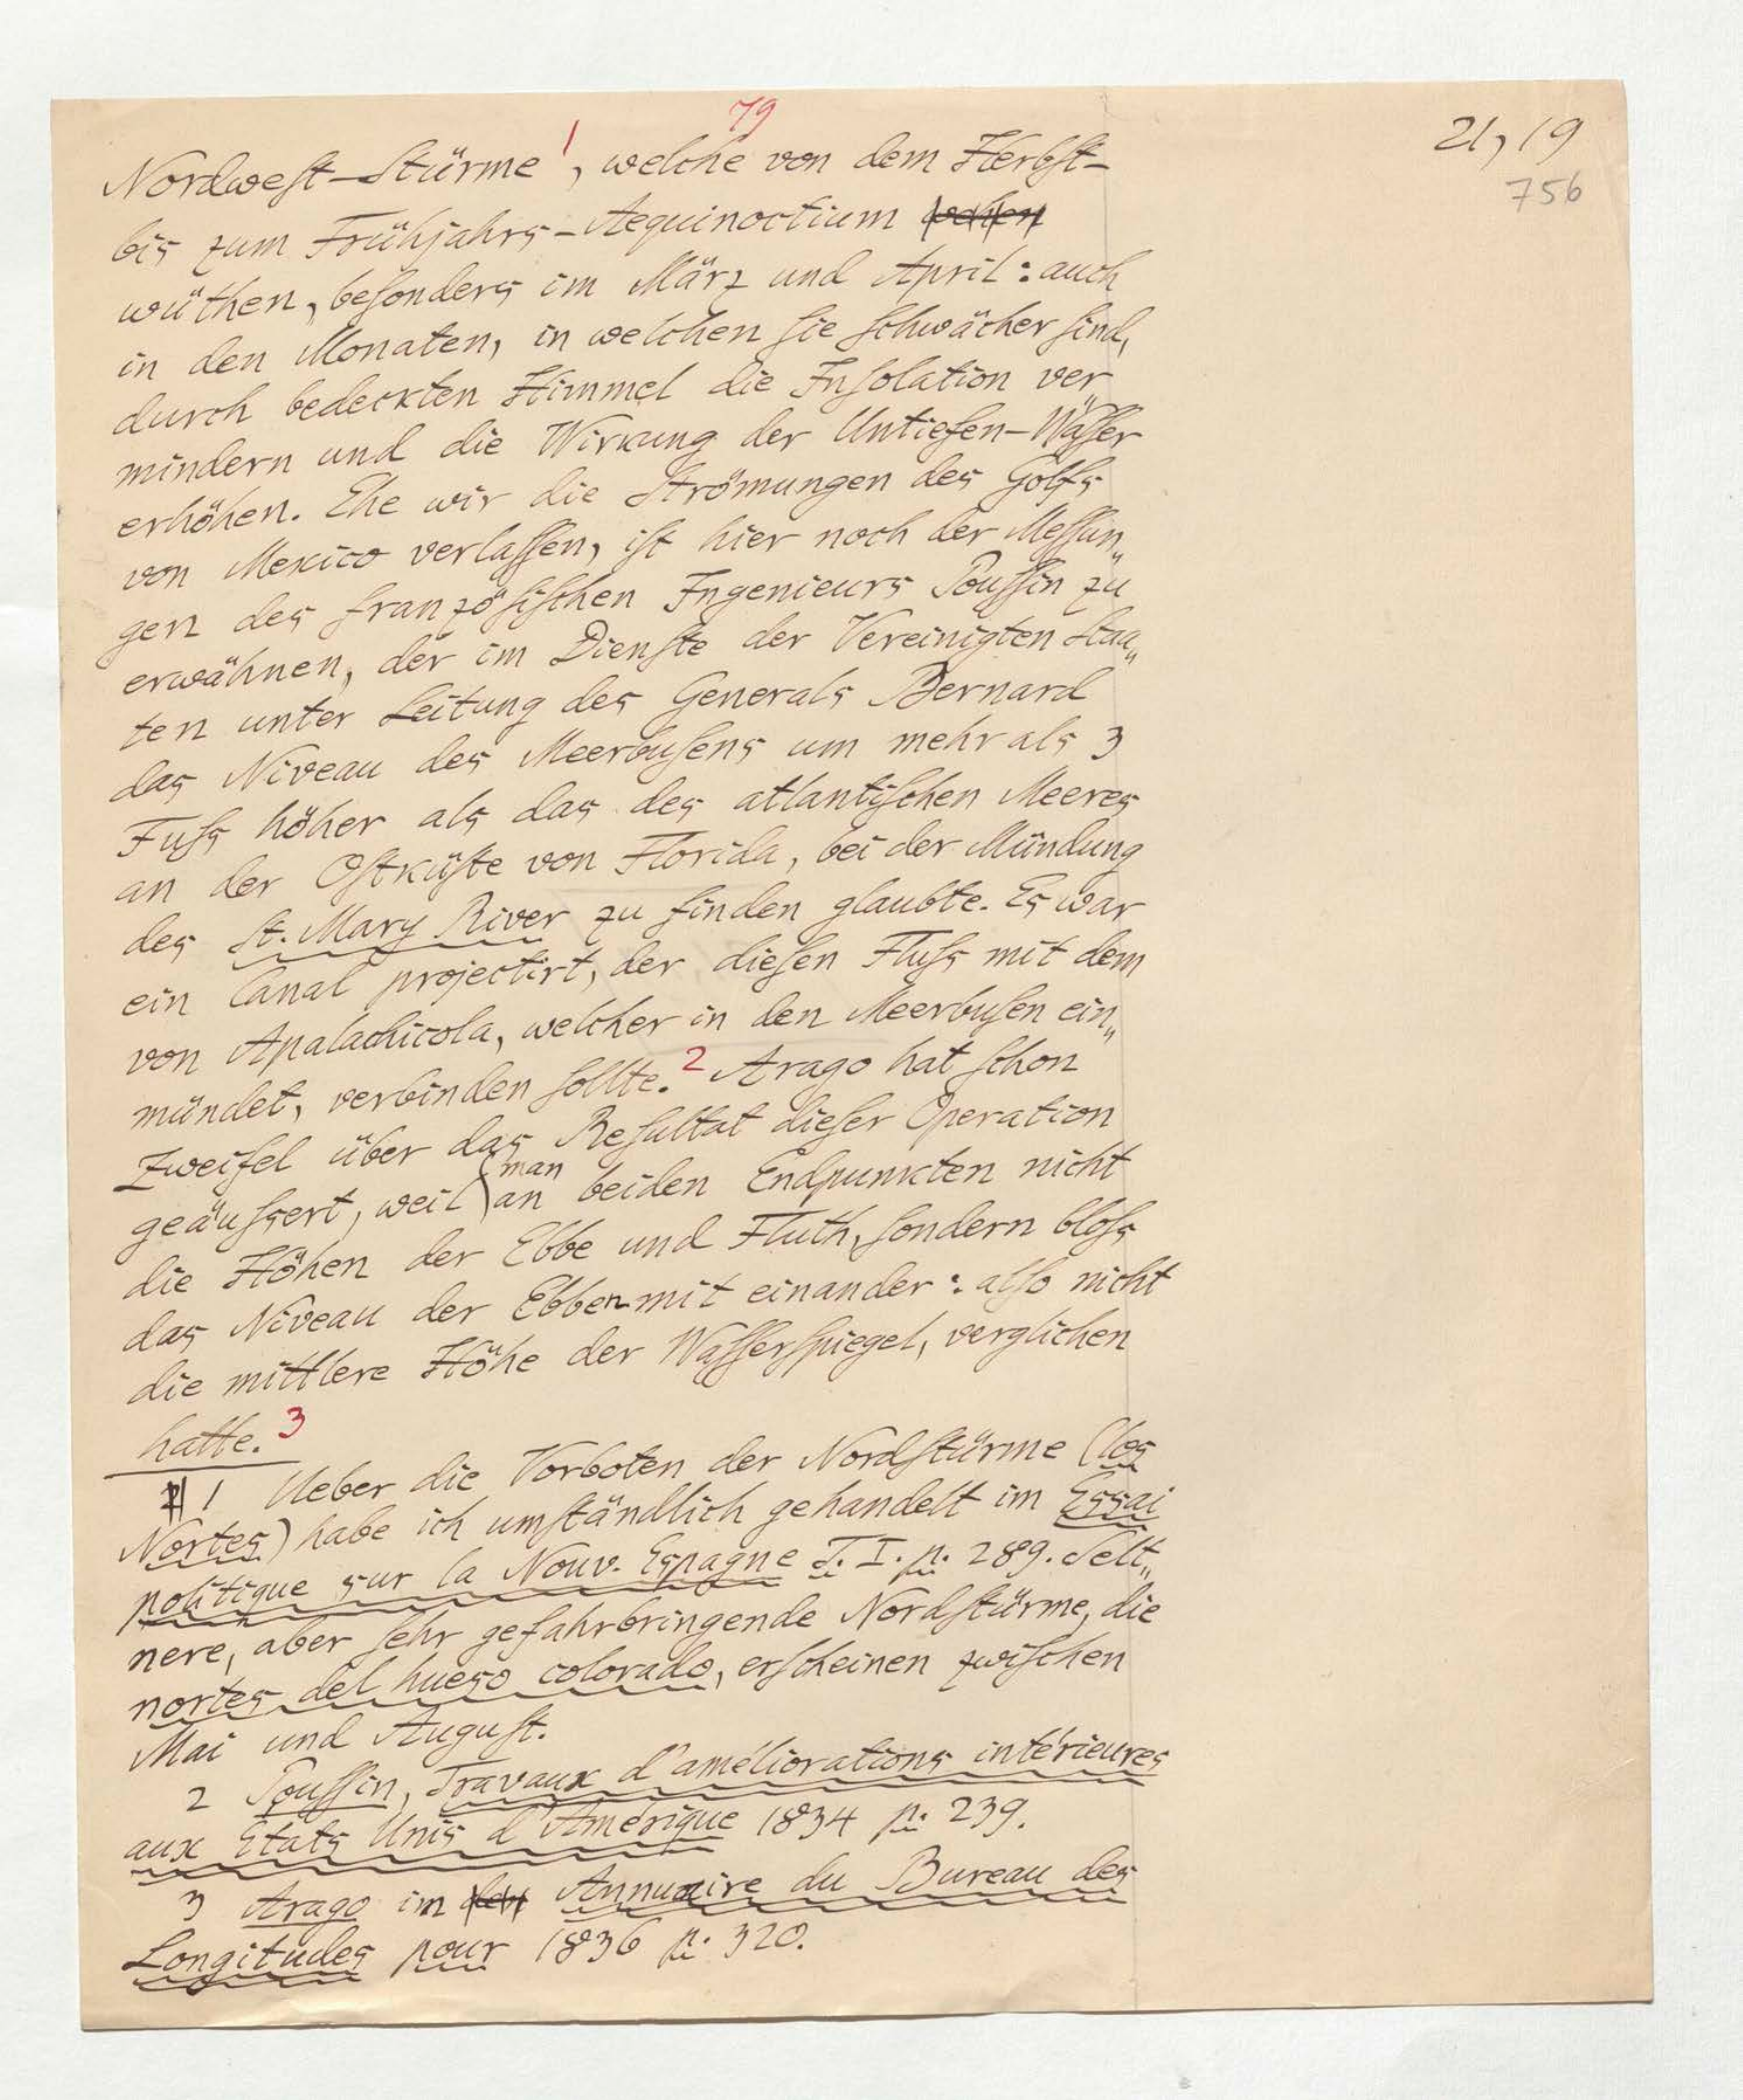 79
21, 19
756
Nordweſt-Stürme 1, welche von dem Herbſt-
bis zum Frühjahrs-Aequinoctium wehen
wüthen, beſonders im März und April: auch
in den Monaten, in welchen ſie ſchwächer ſind,
durch bedeckten Himmel die Inſolation ver„
mindern und die Wirkung der Untiefen-Wäſſer
erhöhen. Ehe wir die Strömungen des Golfs
von Mexico verlaſſen, iſt hier noch der Meſſun„
gen des franzöſiſchen Ingenieurs Pouſſin zu
erwähnen, der im Dienſte der Vereinigten Staa„
ten unter Leitung des Generals Bernard
das Niveau des Meerbuſens um mehr als 3
Fuſs höher als das des atlantiſchen Meeres
an der Oſtküſte von Florida, bei der Mündung
des St. Mary River zu finden glaubte. Es war
ein Canal projectirt, der dieſen Fluſs mit dem
von Apalachicola, welcher in den Meerbuſen ein„
mündet, verbinden ſollte. 2 Arago hat ſchon
Zweifel über das Reſultat dieſer Operation
geäuſsert, weil man an beiden Endpunkten nicht
die Höhen der Ebbe und Fluth, ſondern bloſs
das Niveau der Ebben mit einander: alſo nicht
die mittlere Höhe der Waſſerſpiegel, verglichen
hatte. 3
1 Ueber die Vorboten der Nordſtürme (los
Nortes) habe ich umſtändlich gehandelt im Essai
politique sur la Nouv. Espagne T. I. p. 289. Selt„
nere, aber ſehr gefahrbringende Nordſtürme, die
nortes del hueso colorado, erſcheinen zwiſchen
Mai und Auguſt.
2 Pouſſin, Travaux d'améliorations intérieures
aux Etats Unis d'Amérique 1834 p. 239.
3 Arago im den Annuaire du Bureau des
Longitudes pour 1836 p. 320.